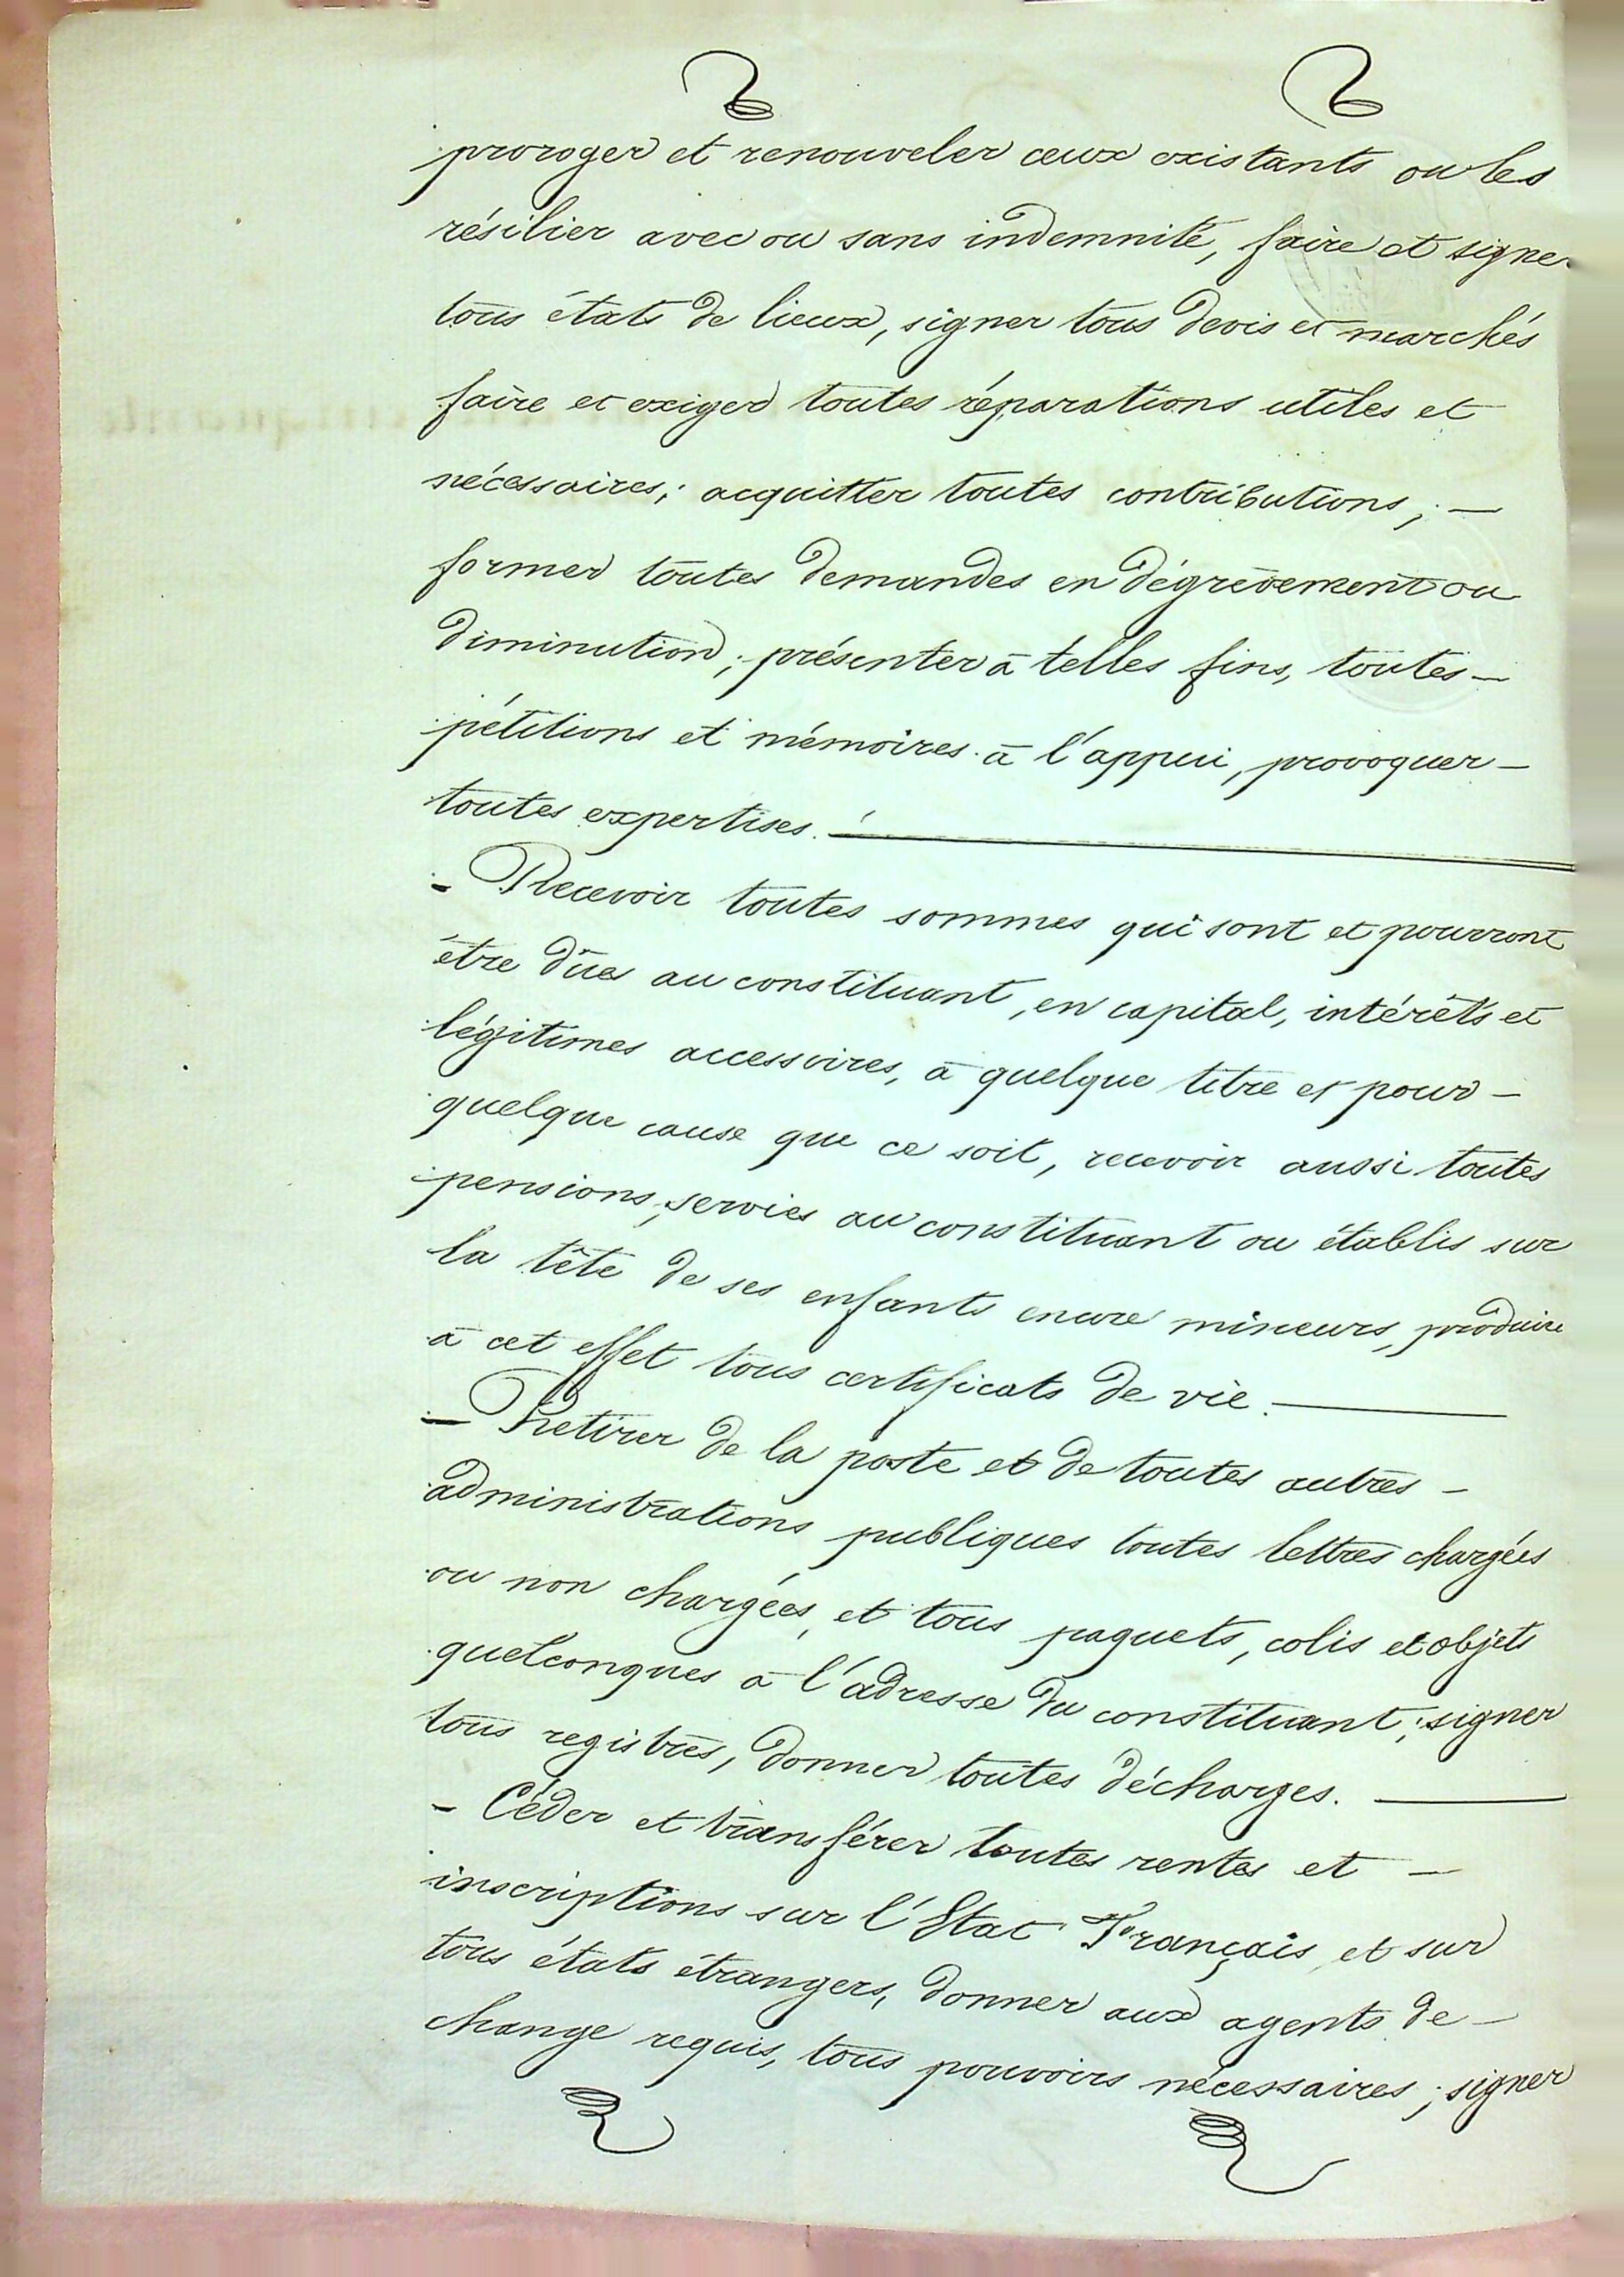 proroger et renouveler ceux existants ou les
résilier avec ou sans indemnité, faire et signer
tous états de lieux, signer tous devis et marchés
faire et exiger toutes réparations utiles et
nécessaires; acquitter toutes contributions; —
former toutes demandes en dégrèvement ou
diminution; présenter à telles fins, toutes —
pétitions et mémoires à l'appui, provoquer —
toutes expertises. —
- Recevoir toutes sommes qui sont et pourront
être dûes au constituant, en capital, intérêts et
légitimes accessoires, à quelque titre et pour —
quelque cause que ce soit, recevoir aussi toutes
pensions, servies au constituant ou établis sur
la tête de ses enfants encore mineurs, produire
à cet effet tous certificats de vie. —
- Retirer de la poste et de toutes autres —
administrations publiques toutes lettres chargées
ou non chargées, et tous paquets, colis et objets
quelconques à l'adresse du constituant; signer
tous registres, donner toutes décharges. —
- Céder et transférer toutes rentes et —
inscriptions sur l'Etat Français, et sur
tous états étrangers, donner aux agents de —
change requis, tous pouvoirs nécessaires; signer